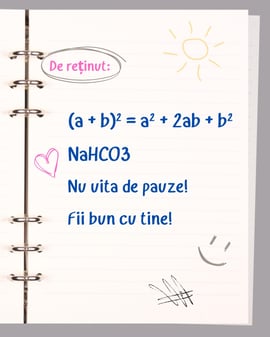 De reținut:
(a + b)² = a² + 2ab + b²
NaHCO3
Nu uita de pauze!
Fii bun cu tine!